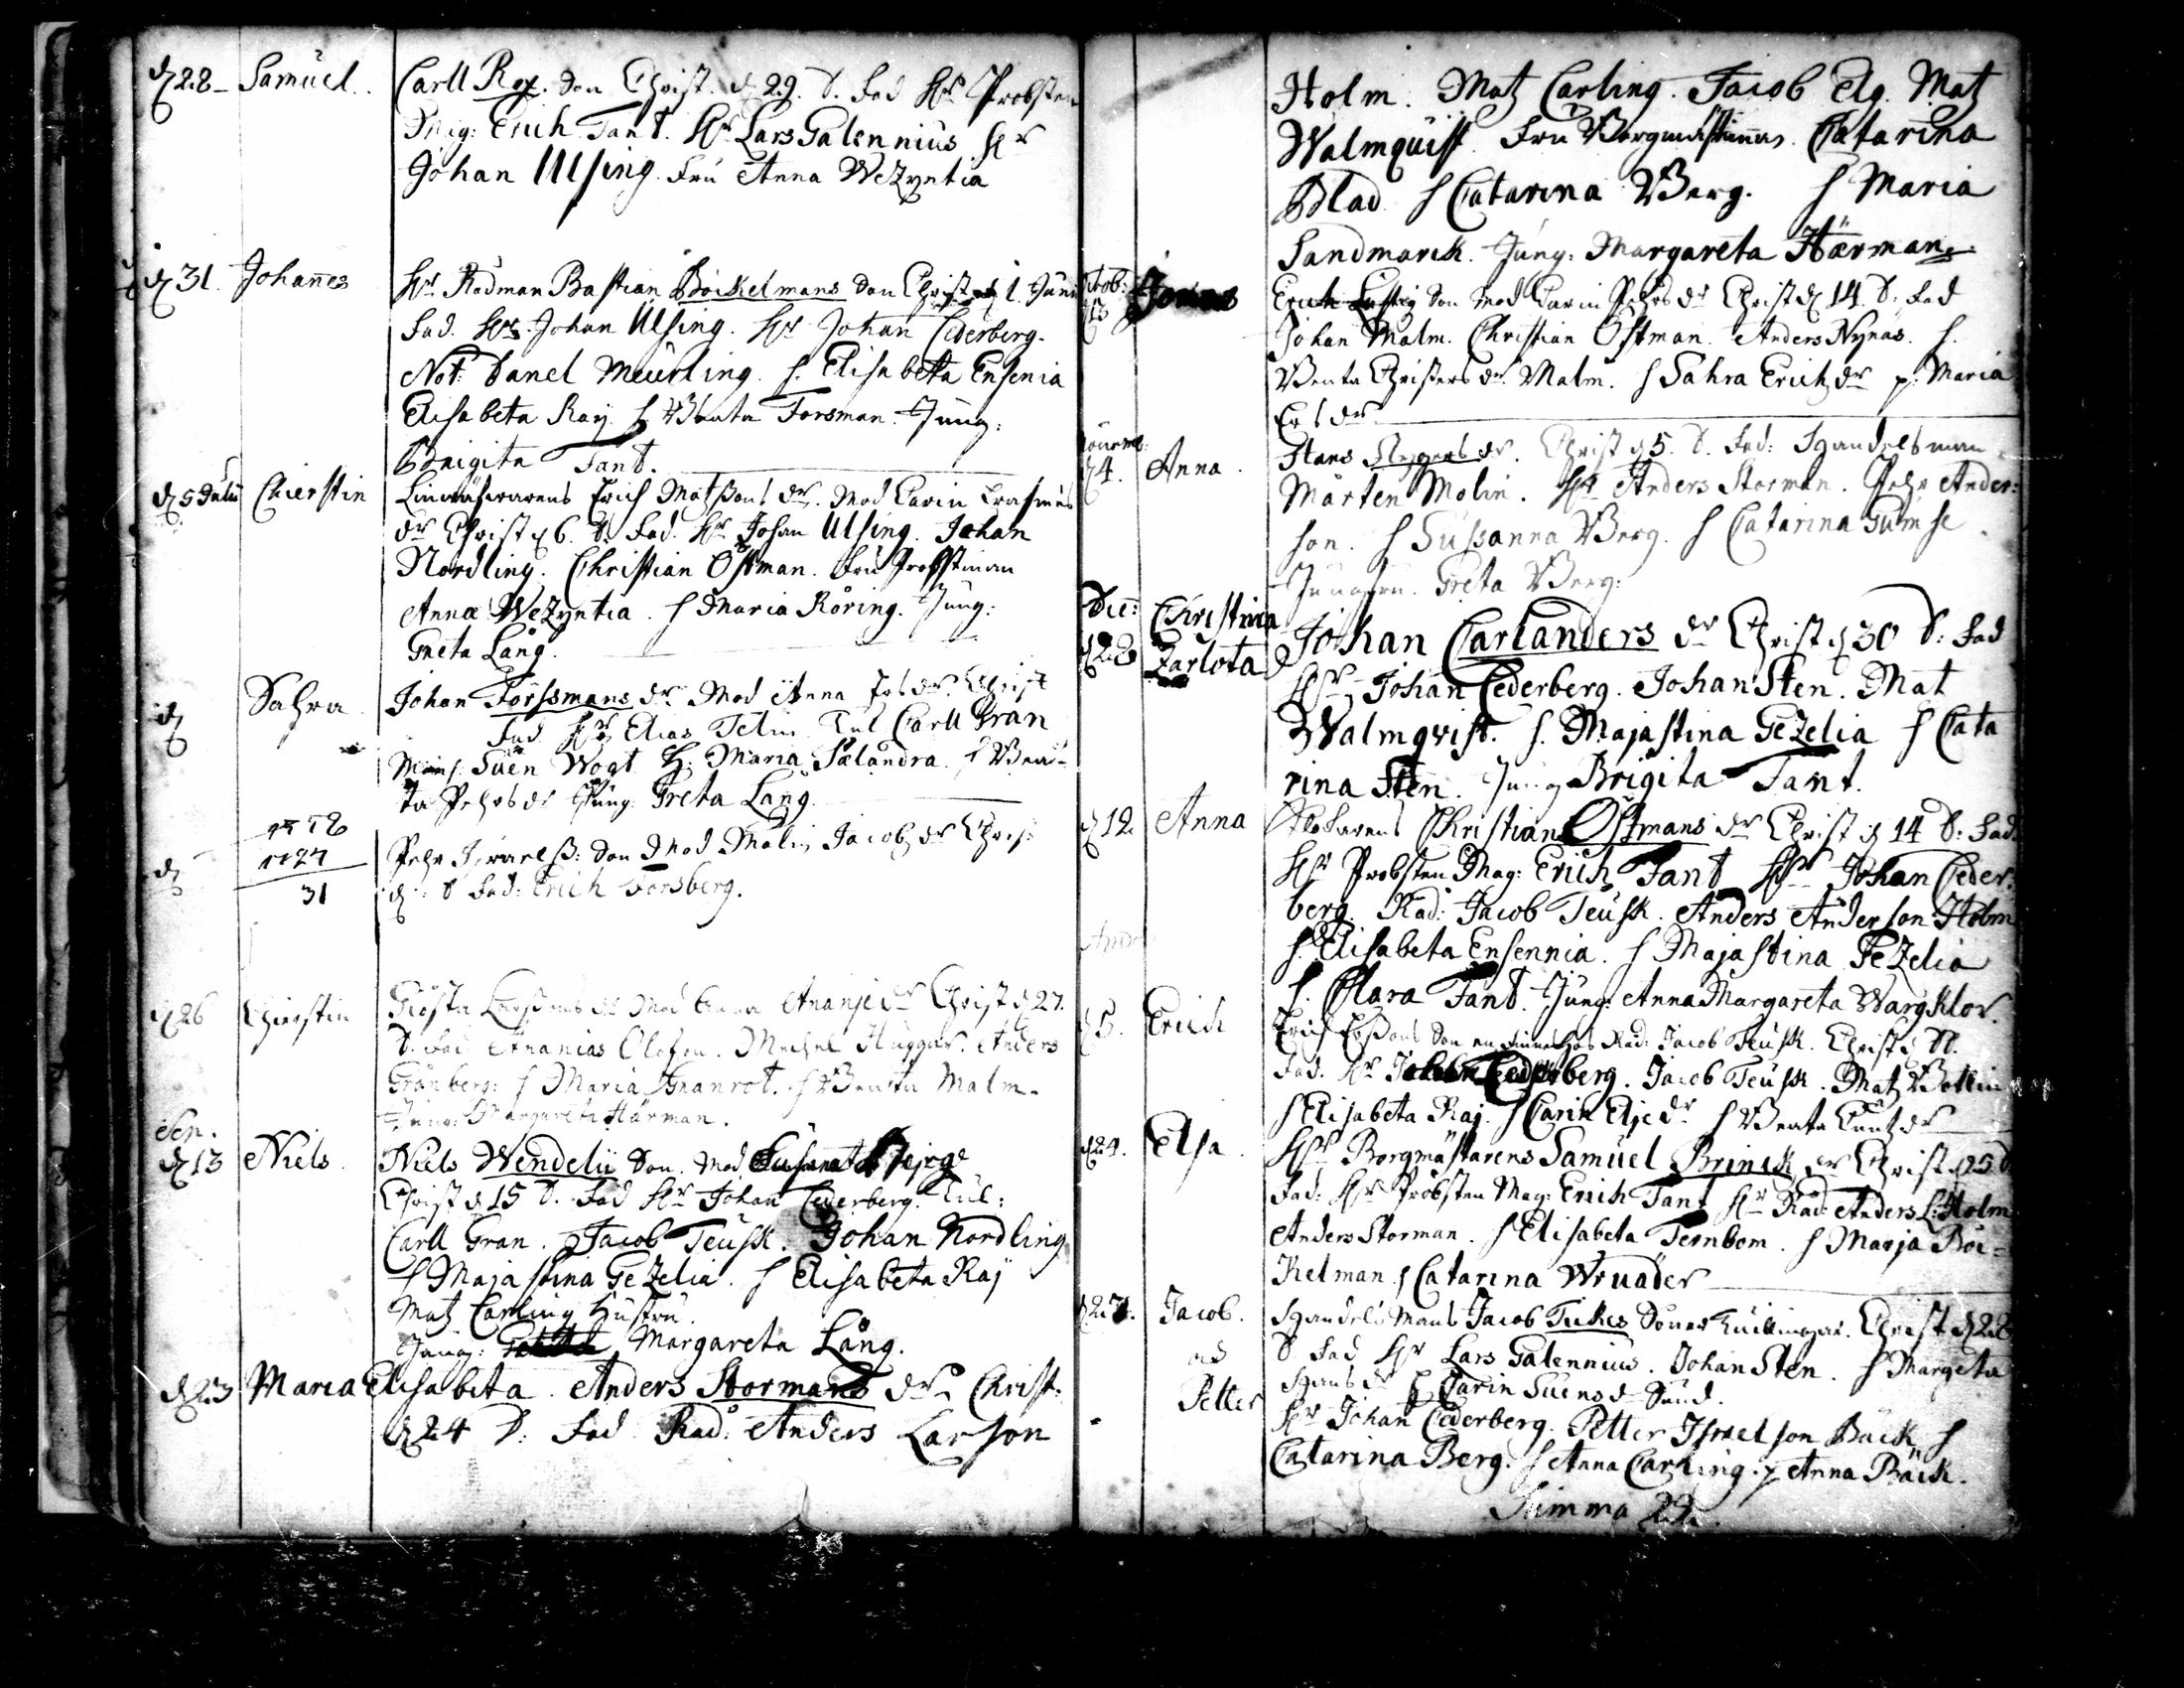 d 28 Samuel. Carll Roy. Son Christ. d 29. D. Fad Hr Probsten
Mag: Erich Fant. Hr Lars Galennius Hr
Johan Ulsing. Fru Anna Wezyntia
d 31. Johanes Hr Rådman Bastian Böckelmans Son Christ d 1. Juni
Fad. Hr Johan Ulsing. Hr Johan Cederberg.
Not: Danel Meurling. h. Elisabeta Ensenia
Elisabeta Raij h Beata Forsman. Jung:
Brigita Fant.
d 5 Julii Chierstin Erich Matssons dr. Mod Carin Erasmus
dr Christ d 6. D. Fad. Hr Johan Ulsing. Johan
Nordling. Christian Östman. Fru Probstinan
Anna Wezyntia. h Maria Röring. Jung:
Greta Lång.
d Sahra Johan Forssmans dr Mod Anna dr. Christ
Fad Hr Elias Telin Tul Carll Gran
Suen Wogt H. Maria Salandra. h Bea-
ta Pehrs dr Jung. Greta Lång.
d Pehr Son Mod Malin Jacobs dr Chris:
1727
31 d D Fad: Erich Forsberg.
d 26 Chierstin Giösta Larssons dr Mod Anna Ananie dr Christ d 27.
D. Fad Ananias Olofson. Michel Huggar. Anders
Grönberg: h Maria Granrot. h Beata Malm.
Jung: Margareta Härman.
Sep.
d 13 Niels. Niels Wendelii Son. Mod Susanna
Christ d 15 D. Fad Hr Johan Cederberg. Tul:
Carll Gran. Jacob Teusk. Johan Nordling
h Maja Stina Gezelia. h Elisabeta Raij
Matz Carling Hustru.
Jung: Margareta Lång.
d 23 Maria Elisabeta. Anders Stormans dr Christ:
d 24 D: Fad Råd: Anders Larson
Holm. Matz Carling. Jacob Elg. Matz
Walmquist. Fru Borgmästinnan. Catarina
Blad. h Catarina Berg. h Maria
Sandmarck. Jung: Margareta Härman.
Octob:
d 13 Jonas Erich Lustig Son Mod Carin Pehrs dr Christ d 14. D: Fad
Johan Malm. Christian Östman. Anders Nynäs. h.
Beata Christers dr Malm. h Sahra Erichs dr p: Maria
Ers dr
d 4. Anna. Hans dr. Christ d 5. D. Fad: Handelsman
Mårten Molin. Hr Anders Storman. Pehr Ander:
son. h Susanna Berg. h Catarina Gumse
Jungfru. Greta Berg:
Dec: Christina
d 28 Zarlota Johan Carlanders dr Christ d 30 D: Fad
Hr Johan Cederberg. Johan Sten. Mat
Walmqvist. h. Majastina Gezelia h Cata
rina Sten. Jung Brigita Fant.
d 12 Anna Christian Östmans dr Christ d 14 D: Fad:
Hr Probsten Mag: Erich Fant Hr Johan Ceder:
berg. Råd: Jacob Teusk. Anders Anderson Holm
h. Elisabeta Ensennia. h Majastina Gezelia
h. Clara Fant. Jung: Anna Margareta Wargklor.
d 5. Erich Erich Erssons Son Råd: Jacob Teusk. Christ d D.
Fad. Hr Johan Cederberg. Jacob Teusk. Matz Bottin
h Elisabeta Raj. h Carin Elje dr h Beata
d 24. Elsa. Hr Borgmästarens Samuel Brinck dr Christ d 25 D
Fad: Hr Probsten Mag: Erich Fant Hr Råd: Anders L: Holm
Anders Storman. h Elisabeta Ternbom. h Marja Böc-
kelman. h Catarina Wruader
d 27. Jacob. Handels Mans Jacob Tickes Söner tuillingar. Christ d 28
od D Fad Hr Lars Galennius. Johan Sten. h Margeta
Petter Hans dr h Carin Suens dr Sund.
Hr Johan Cederberg. Petter Israelson Bäck h
Catarina Berg. h Anna Carling. p Anna Bäck.
Summa 29.